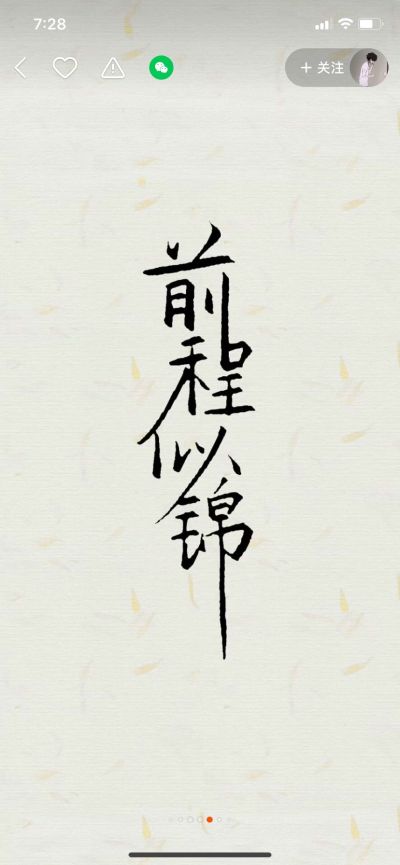 7:28
+ 关注
前程似锦